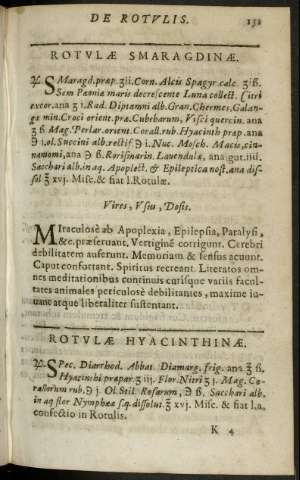 DE ROTVLIS. 151
ROTVLÆ SMARAGDINÆ.
℞ SMaragd. præp. ʒii. Corn. Alcis Spagyr. calc. ʒß.
Sem Pæoniæ maris decrescente Luna collect. siri
excor. ana ʒ i. Rad. Diptamni alb. Gran. Chermes, Galan-
gæ min. Croci orient. præ. Cubebarum, Visci quercin. ana
ʒ ß. Mag. Perlar. orient. Corall. rub. Hyacinth præp. ana
℈ i. ol. Succini alb. rectif. ℈ i. Nuc. Mosch. Macis, cin-
namomi, ana ℈ ß. Rorismarin. Lauendulæ, ana gut. iiii.
Sacchari alb. in aq. Apoplect. & Epileptica nost. ana dis-
sol ℥ xvj. Misc. & fiat l. Rotulæ.
Vires, Vsus, Dosis.
MIraculosè ab Apoplexia, Epilepsia, Paralysi,
&c. præseruant. Vertiginẽ corrigunt. Cerebri
debilitatem auferunt. Memoriam & sensus acuunt.
Caput confortant. Spiritus recreant. Literatos om-
nes meditationibus continuis curisque variis facul-
tates animales periculosè debilitantes, maximè iu-
uant atque liberaliter sustentant.
ROTVLÆ HYACINTHINÆ.
℞ SPec. Diarrhod. Abbat. Diamarg. frig. ana ʒ ß.
Hyacinthi præpar. ʒ iij. Flor. Nitri ʒ j. Mag. Co-
rallorum rub. ℈ j. Ol. Stil. Rosarum, ℈ ß. Sacchari alb.
in aq flor Nympheæ s.q. dissolut. ℥ xvj. Misc. & fiat l.a.
confectio in Rotulis.
K 4